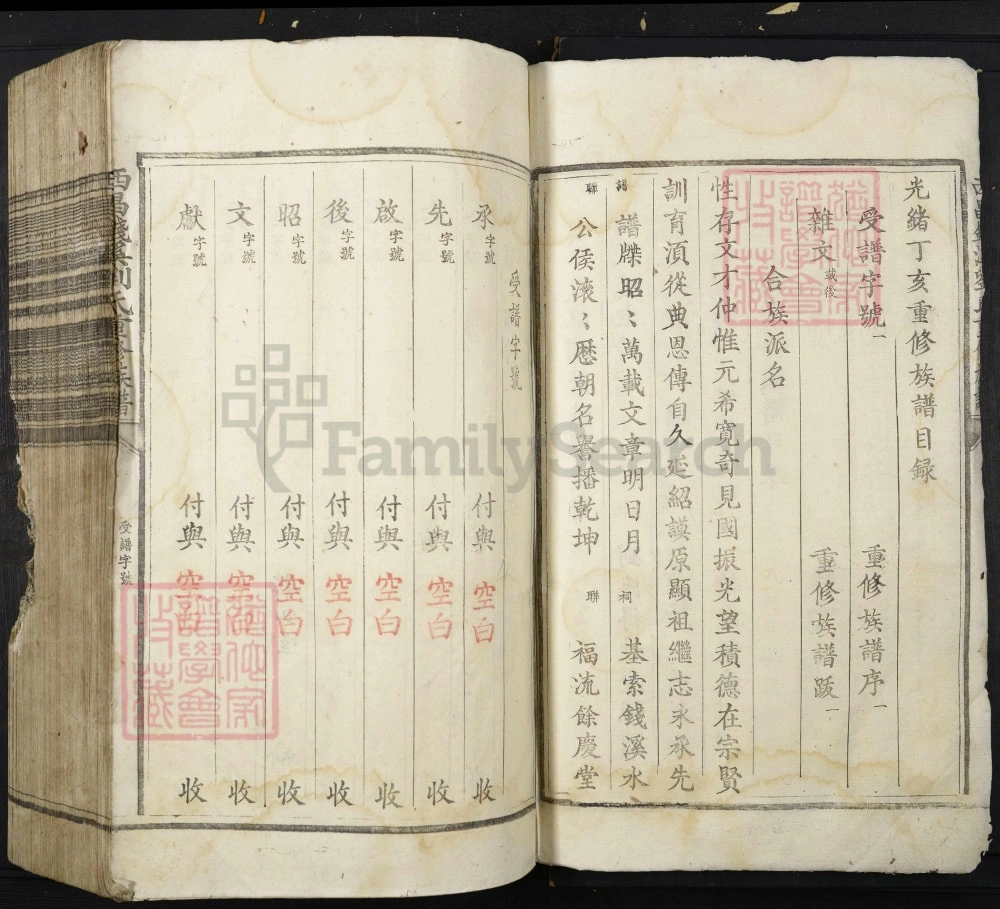 光緒丁亥重修族譜目録
受譜字號一 重修族譜序一
雜文載後 重修族譜跋一
合族派名
性存文才仲惟元希寬奇見國振光望積德在宗賢
訓育湏從典恩傳自久延紹謨原顯祖繼志永承先
譜 譜牒昭〻萬載文章明日月 祠 基索錢溪水
聯 公侯滚〻歷朝名譽播乾坤 聯 福流餘慶堂
受譜字號
承字號 付與 空白 收
先字號 付與 空白 收
啟字號 付與 空白 收
後字號 付與 空白 收
昭字號 付與 空白 收
文字號 付與 空白 收
獻字號 付與 空白 收
受譜字號
FamilySearch